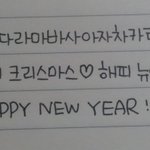 다라마바사아자차카
크리스마스♡해피 뉴
PPY NEW YEAR!